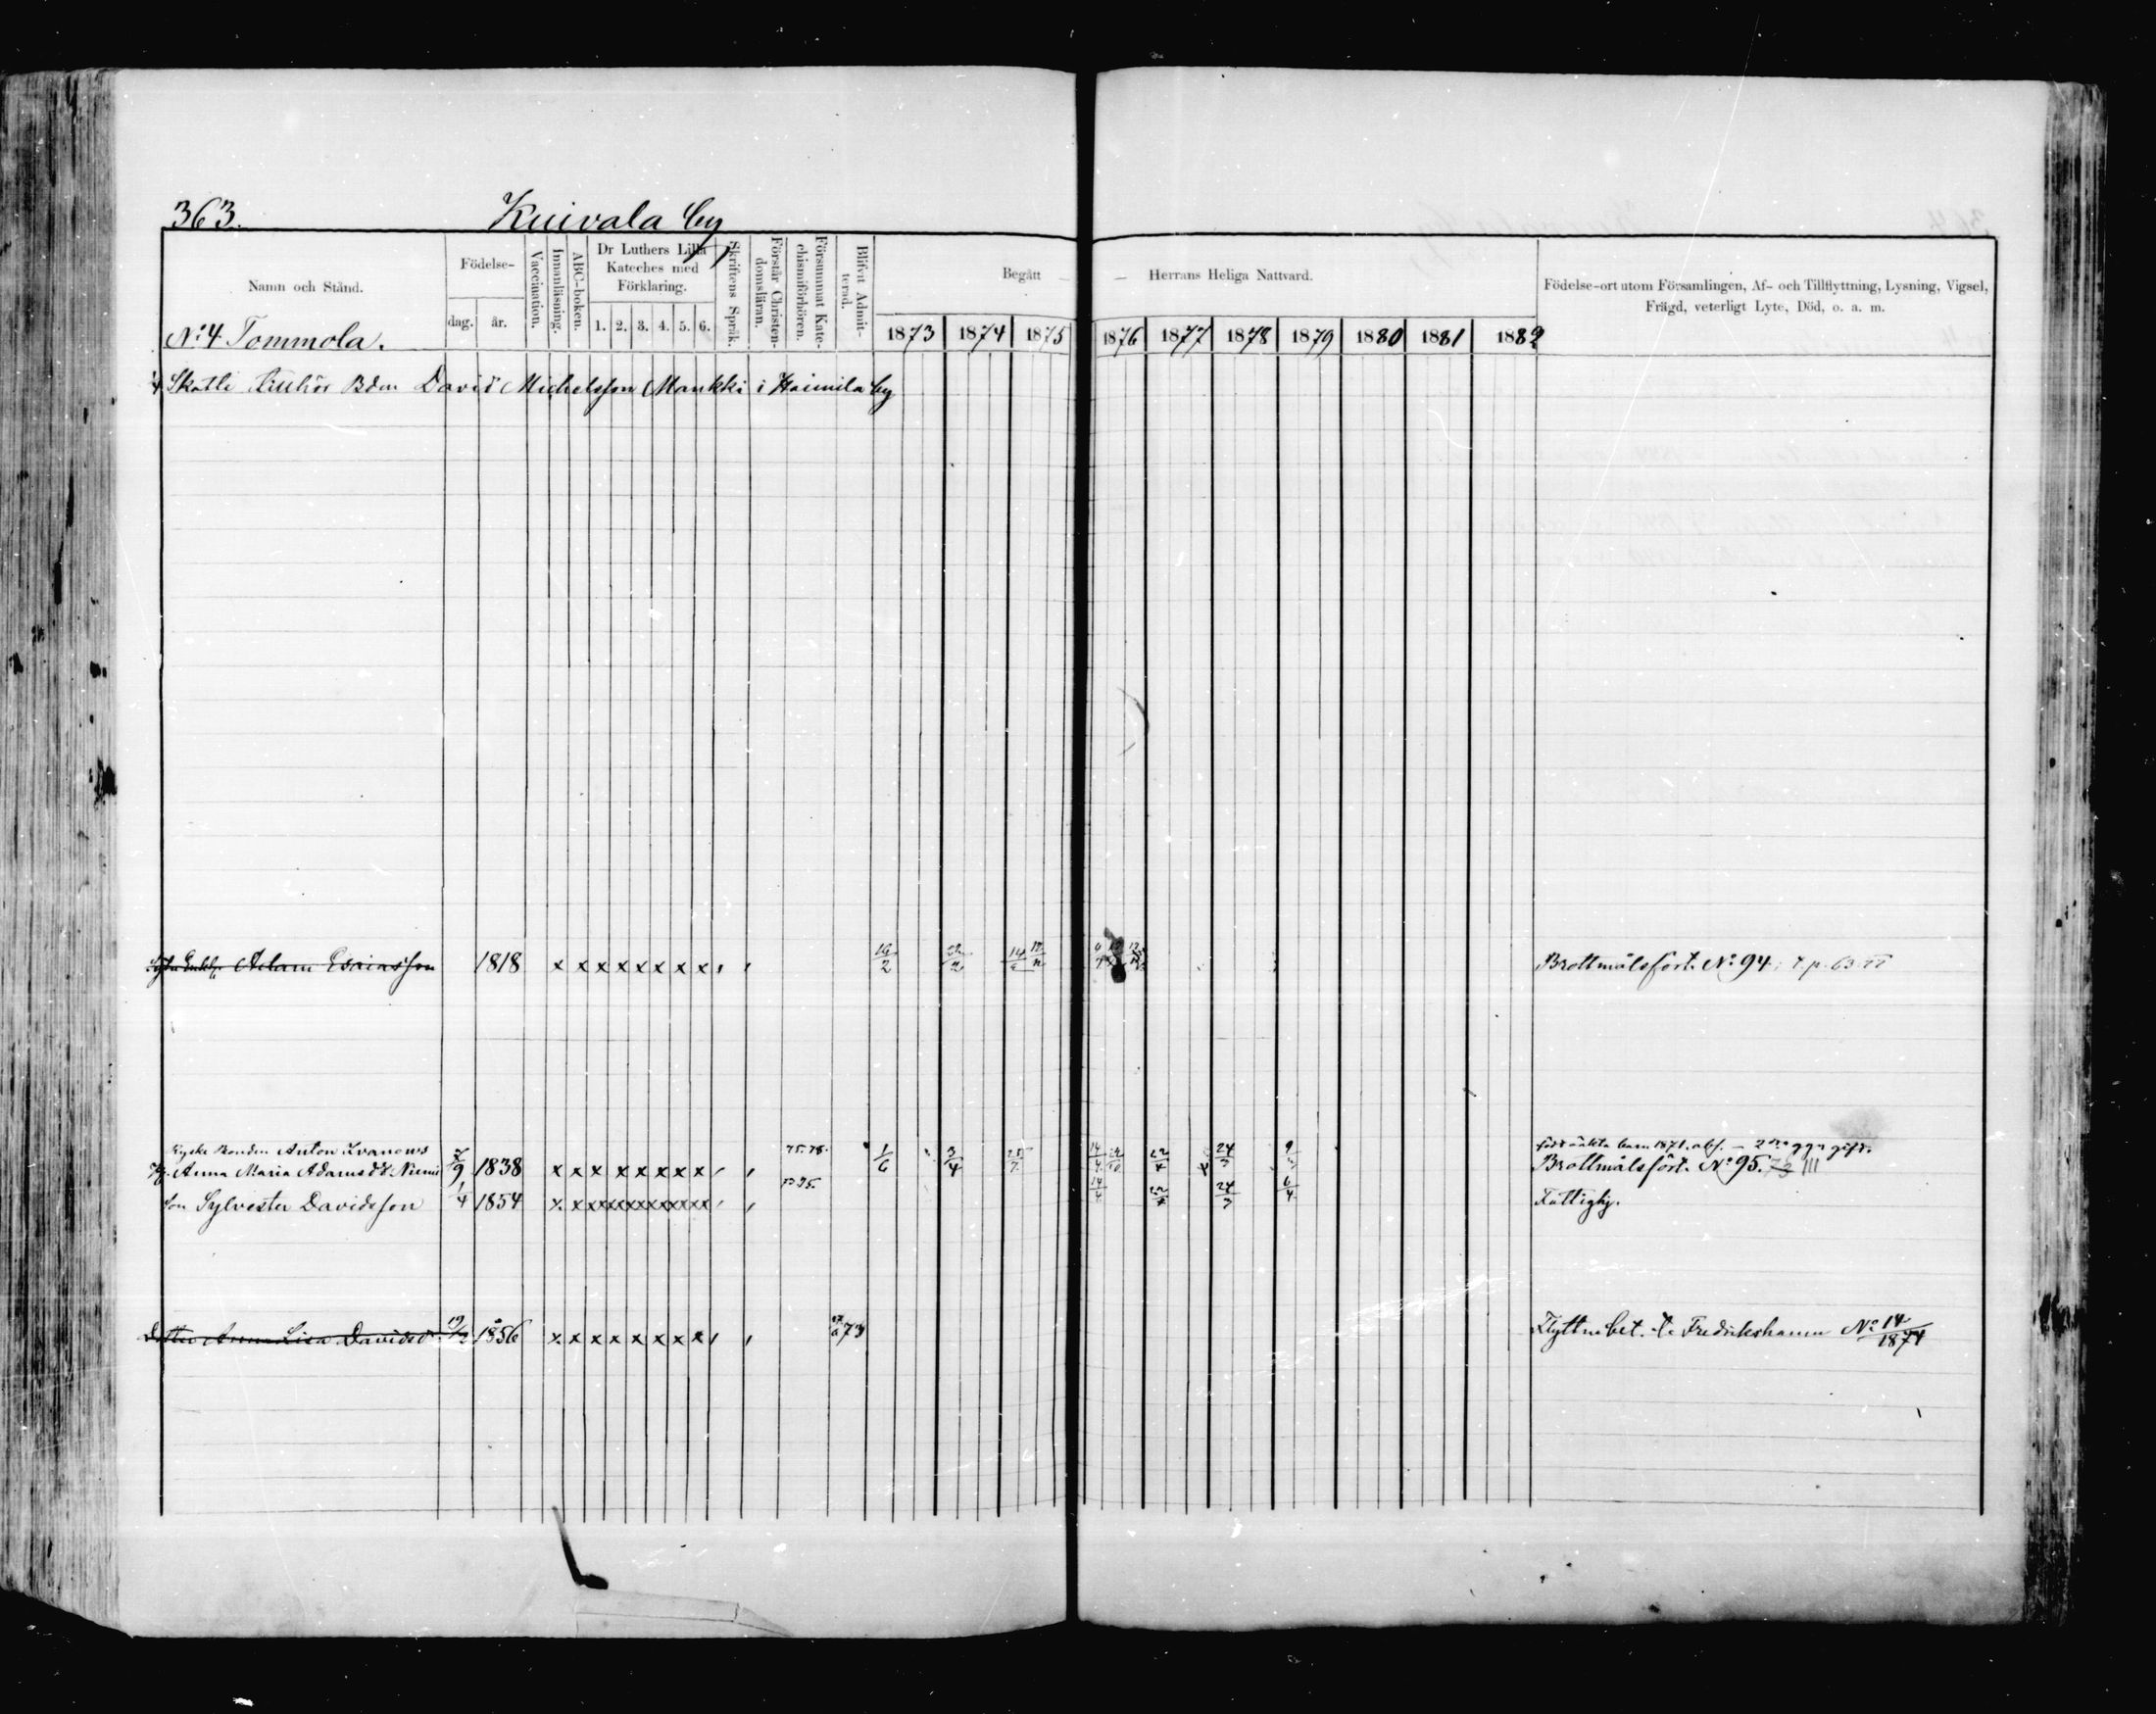 363. Kuivala by
Namn och Stånd.
Födelse-
dag. år.
Vaccination.
Innanläsning.
ABC-boken.
Dr Luthers Lilla Kateches med Förklaring.
1. 2. 3. 4. 5. 6.
Skriftens Språk.
Förstår Christendomsläran.
Försummat Katechismiförhören.
Blifvit Admitterad.
Begått — — Herrans Heliga Nattvard.
1873 1874 1875 1876 1877 1878 1879 1880 1881 1882
Födelse-ort utom Församlingen, Af- och Tillflyttning, Lysning, Vigsel,
Frägd, veterligt Lyte, Död, o. a. m.
No 4 Tommola.
Skatte tillhör Bdn David Michelsson Mankki i Haimila by
Adam Esaiasson 1818 x x x x x x x x Brottmålsfört. No 94
Ryske Bonden Anton Ivanows 75. 78.
Anna Maria Adamsdr Niemi 7/9 1838 x x x x x x x x 1/6 3/4 24/3 Brottmålsfört. No 95.
Son Sylvester Davidsson 1/4 1854 14/4 24/3 6/4 Fattighj.
Dotter Anna Lisa Davidsd 1856 x x x x x x x x 73 Flyttn. bet. t. Fredrikshamn No 14/1874